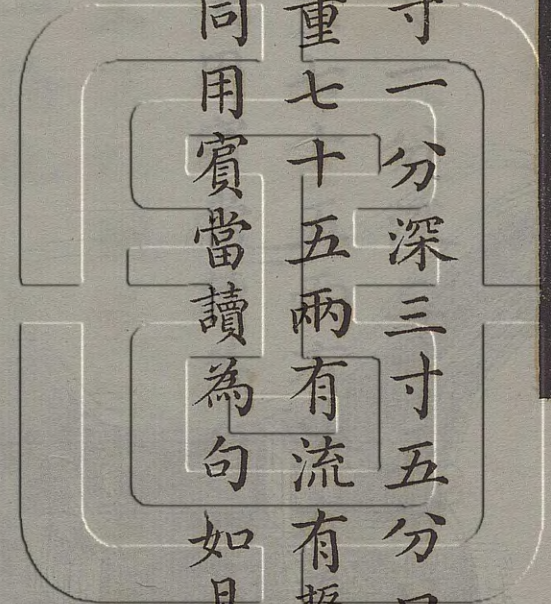 寸一分深三寸五分
重七十五兩有流有
同用賔當讀為句如